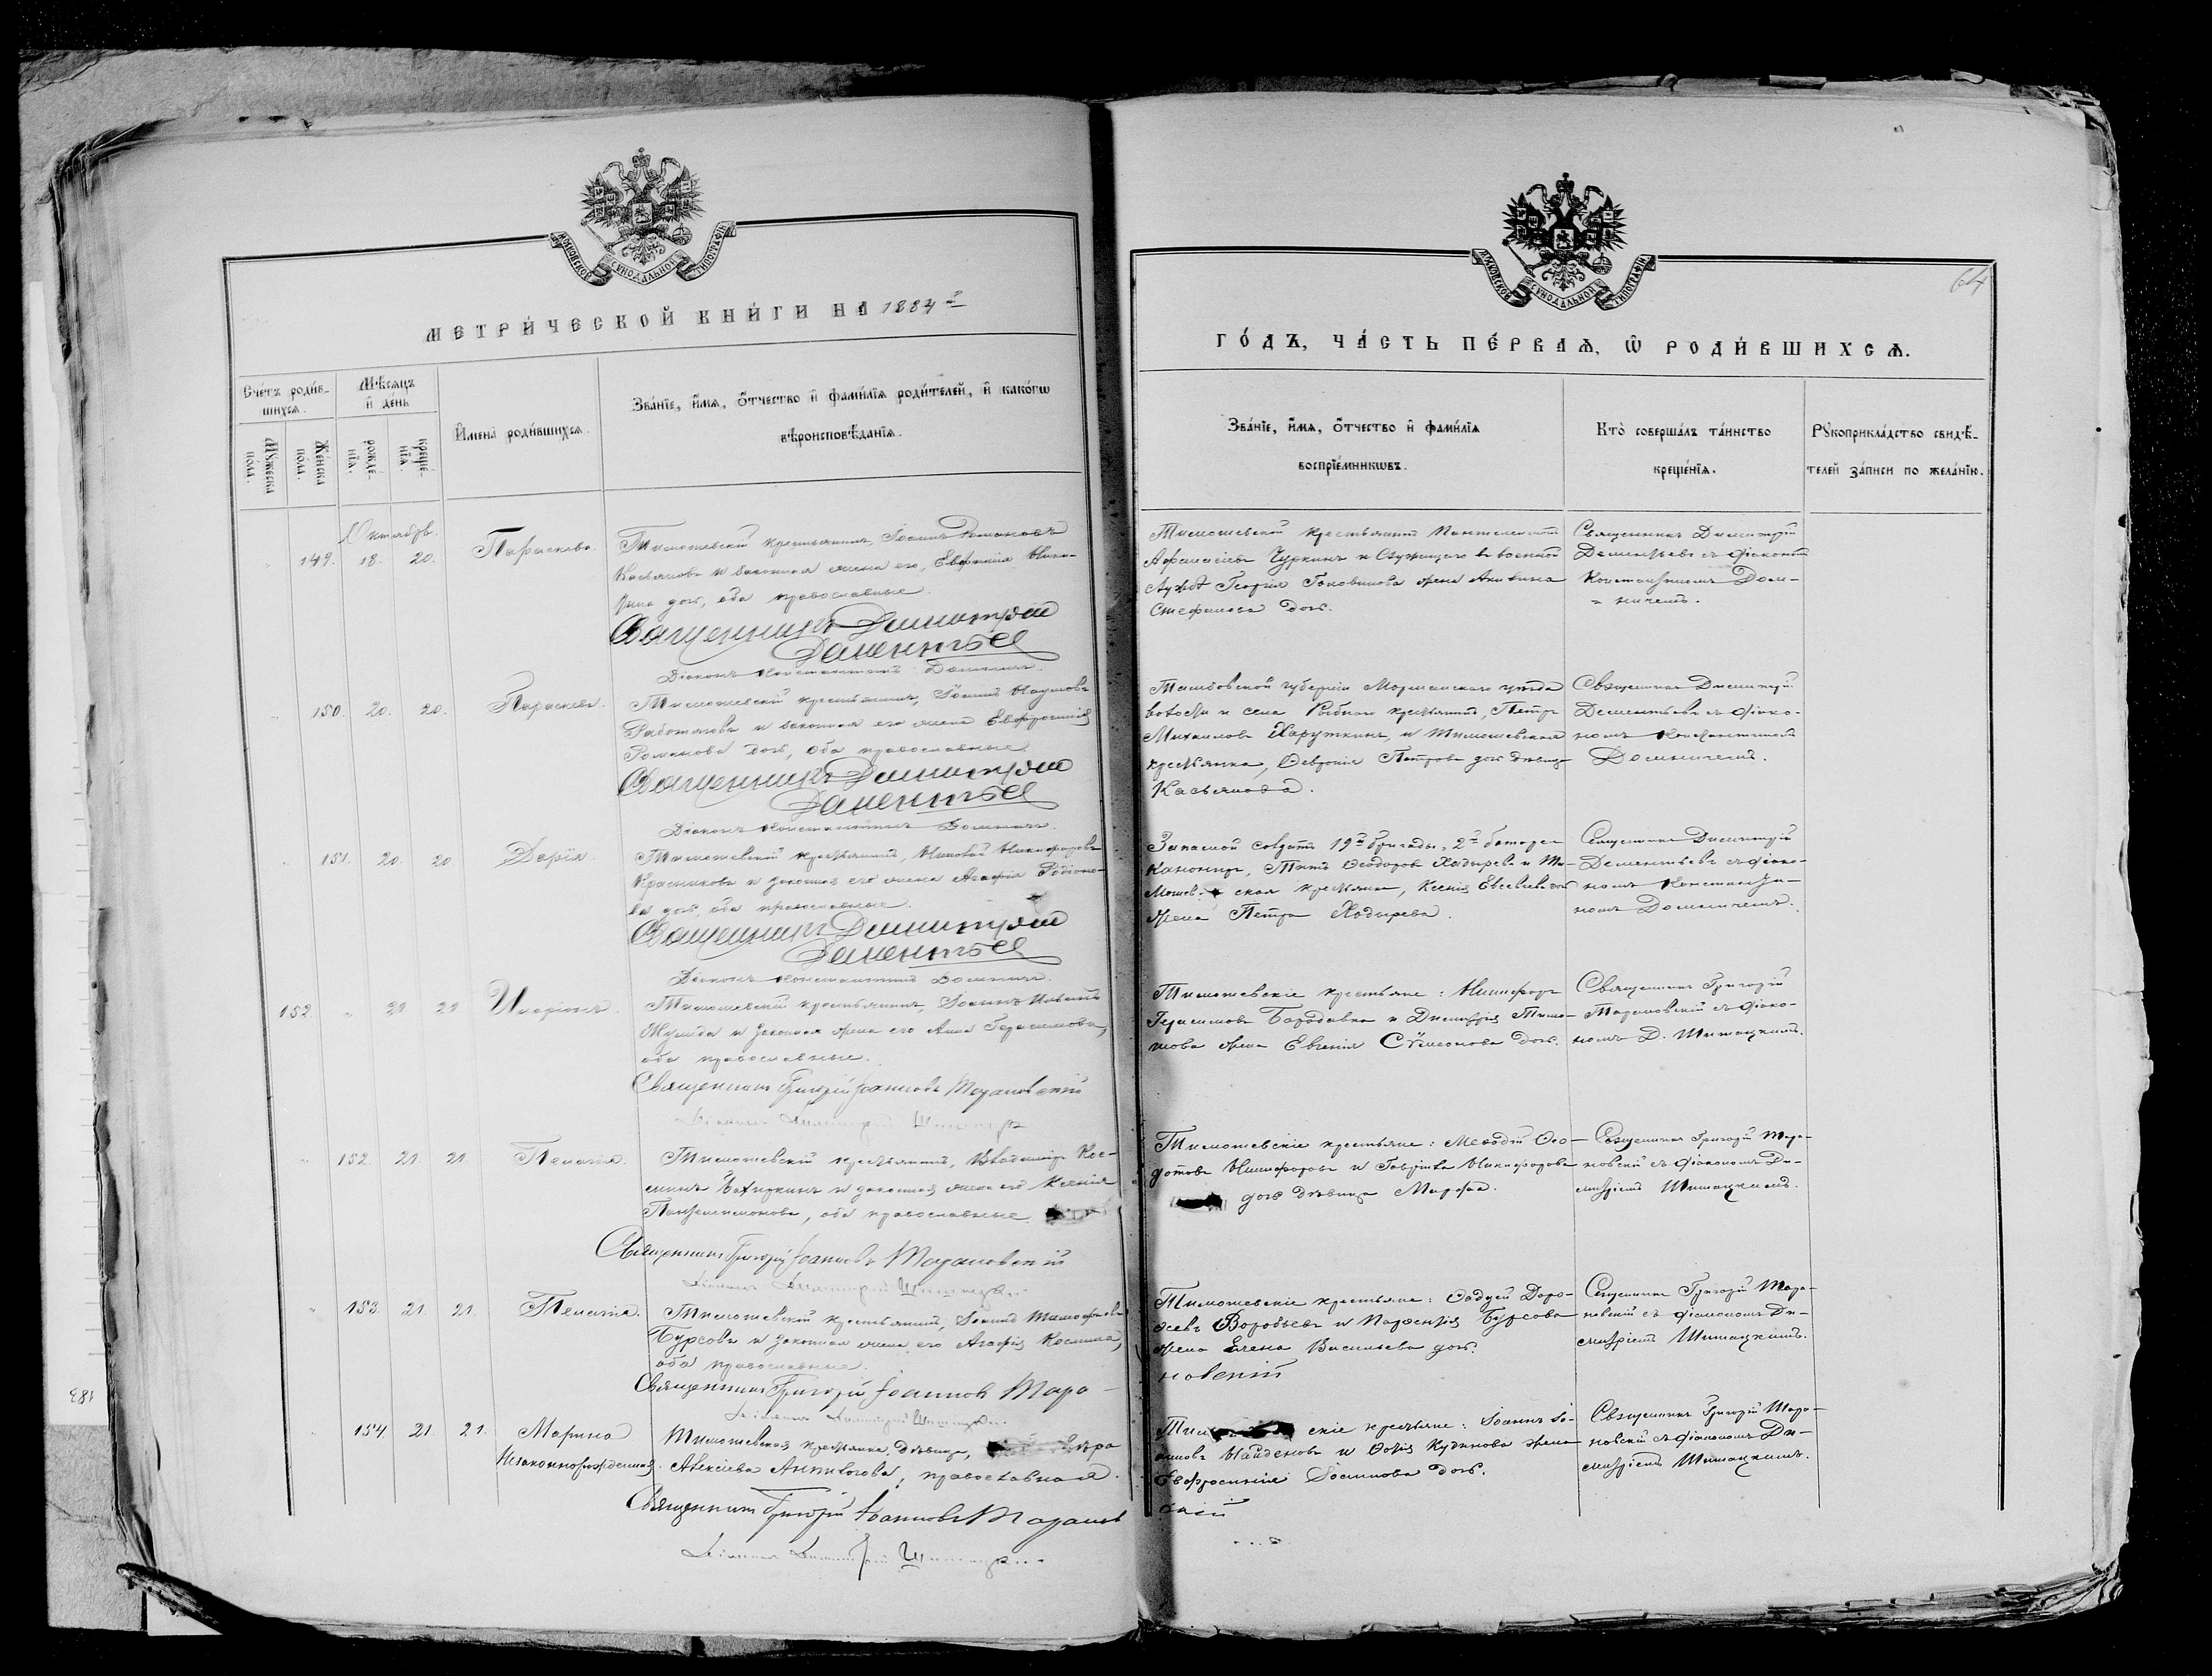 МОСКОВСКОЙ СУНОДАЛЬНОЙ ТИПОГРАФІИ
МЕТРИ́ЧЕСКОЙ КНИ́ГИ НА 1884 г.
Сче́тъ роди́в-
шихсѧ.
Мѣ́сяцъ
и҆ де́нь
И҆мена̀ роди́вшихсѧ.
Зва́нїе, и҆́мѧ, ѻ҆́тчество и҆ фами́лїѧ роди́телей, и҆ како́гѡ
вѣроисповѣ́данїѧ.
Мꙋ́жеска
по́ла.
Же́нска
по́ла.
рожде́-
нїѧ.
креще́-
нїѧ.
Октябрь.
149. 18. 20. Параскева.
Тимошевскій крестьянинъ, Іоаннъ Романовъ
Касьяновъ и законная жена его, Евфимія
дочь, оба православные.
Священникъ Димитрій
Дементьев
Діаконъ Константинъ Домничъ.
150. 20. 20. Параскева.
Тимошевскій крестьянинъ, Іоаннъ Наумовъ
Работяговъ и законная его жена Евфросинія
Романова дочь, оба православные.
Священникъ Димитрій
Дементьев
Діаконъ Константинъ Домничъ.
151. 20. 20 Дарія.
Тимошевскій крестьянинъ, Никифоровъ
Красниковъ и законная его жена Агафія Родіоно-
ва дочь, оба православные.
Священникъ Димитрій
Дементьев
Діаконъ Константинъ Домничъ.
152. „ 21 21 Иларіонъ.
Тимошевскій крестьянинъ, Іоаннъ
и законная жена его Анна Герасимова,
оба православные.
Священникъ Григорій Іоанновъ
Діаконъ Димитрій
152. 21. 21. Пелагія.
Тимошевскій крестьянинъ, Владиміръ Кос-
минъ и законная жена его Ксенія
Пантелеимонова, оба православные.
Священникъ Григорій Іоанновъ
Діаконъ Димитрій
153. 21. 21. Пелагія.
Тимошевскій крестьянинъ, Іоаннъ Тимофеевъ
Бурсовъ и законная жена его Агафія Космина,
оба православные.
Священникъ Григорій Іоанновъ
Діаконъ Димитрій
154 21. 21. Марина
Незаконнорожденная.
Тимошевская крестьянка, дѣвица, Вѣра
Алексіева, православная.
Священникъ Григорій Іоанновъ
Діаконъ Димитрій
64
МОСКОВСКОЙ СУНОДАЛЬНОЙ ТИПОГРАФІИ
ГО́ДЪ, ЧА́СТЬ ПЕ́РВАѦ, Ѡ҆ РОДИ́ВШИХСѦ.
Зва́нїе, и҆́мѧ, ѻ҆́тчество и҆ фами́лїѧ
воспрїе́мникѡвъ.
Кто̀ соверша́лъ та́инство
креще́нїѧ.
Рꙋкоприкла́дство свидѣ́-
телей за́писи по жела́нїю.
Тимошевской крестьянинъ Пантелеимонъ
Афанасіевъ Чуркинъ и служащаго въ военной
службѣ Георгія Головинова жена Акилина
Стефанова дочь.
Священникъ Димитрій
Дементьевъ съ діакономъ
Константиномъ Дом-
ничемъ.
Тамбовской губерніи Моршанскаго уѣзда
волости и села крестьянинъ, Петръ
Михаиловъ Харуткинъ, и Тимошевская
крестьянка, Февронія Петрова дочь дѣвица
Касьянова.
Священникъ Димитрій
Дементьевъ съ діако-
номъ Константиномъ
Домничемъ.
Запасной солдатъ 19й бригады, 2й батареи
канониръ, Титъ Ѳеодоровъ Ходыревъ и Ти-
мошев- ская крестьянка, Ксенія Евсевіева
жена Петра Ходырева.
Священникъ Димитрій
Дементьевъ съ діако-
номъ Константи-
номъ Домничемъ.
Тимошевскіе крестьяне: Никифоръ
Герасимовъ Бородавка и Димитрія Тимо-
жена Евгенія Сѵмеонова дочь.
Священникъ Григорій
съ діако-
номъ Д.
Тимошевскіе крестьяне: Меѳодій Ѳео-
дотовъ Никифоровъ и Гавріила Никифорова
дочь дѣвица Марѳа.
Священникъ Григорій
съ діакономъ Ди-
митріемъ
Тимошевскіе крестьяне: Ѳаддей Доро-
ѳеевъ Воробьевъ и Парѳенія Бурсова
жена Елена Васильева дочь.
новскій
Священникъ Григорій
съ діакономъ Ди-
митріемъ
скіе крестьяне: Іоаннъ Іо-
анновъ Найденовъ и жена
Евфросинія Іоаннова дочь.
Священникъ Григорій
съ діакономъ Ди-
митріемъ
183